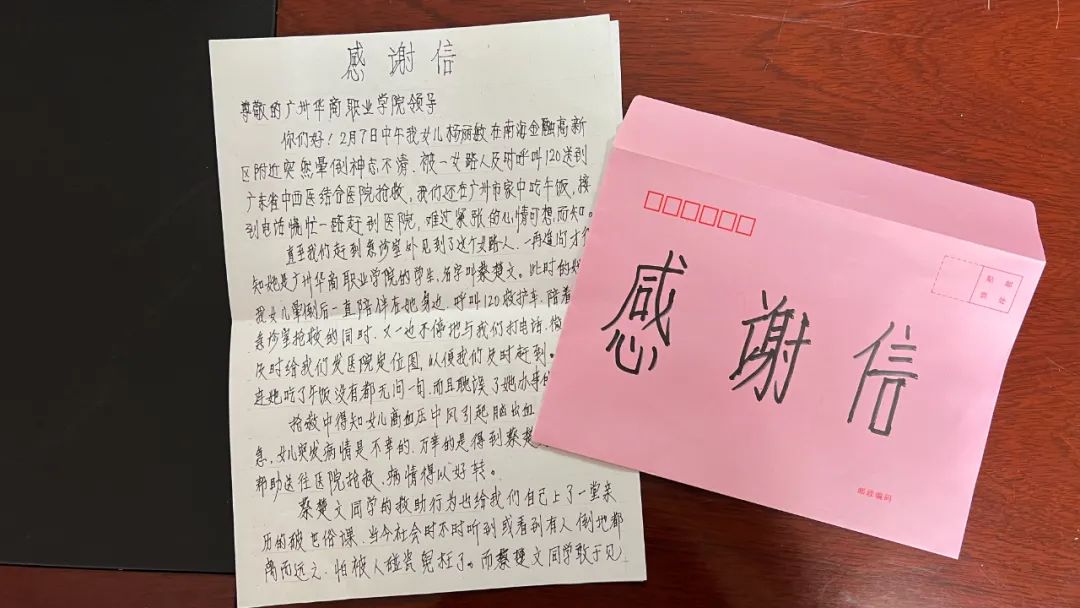 感谢信
尊敬的广州华商职业学院领导
你们好！2月7日中午我女儿杨丽敏在南海金融高新
区附近突然晕倒神志不清。被一女路人及时呼叫120送到
广东省中西医结合医院抢救，我们还在广州市家中吃午饭，接
到电话慌忙一路赶到医院，难过紧张的心情可想而知。
直至我们赶到急诊室外见到了这个女路人，一再追问才
知她是广州华商职业学院的学生，名字叫蔡楚文。此时的她
我女儿晕倒后一直陪伴在她身边，呼叫120救护车，陪着
急诊室抢救的同时，又一边不停地与我们打电话，微
及时给我们发医院定位图，以便我们及时赶到。
连她吃了午饭没有都无问一句，而且耽误了她办事
抢救中得知女儿高血压中风引起脑出血
急，女儿突发病情是不幸的，万幸的是得到蔡楚
帮助送往医院抢救，病情得以好转。
蔡楚文同学的救助行为也给我们自己上了一堂亲
历的破世俗课，当今社会时不时听到或看到有人倒地都
离而远之，怕被人碰瓷冤枉了。而蔡楚文同学敢于见
感谢信
贴邮
票处
邮政编码